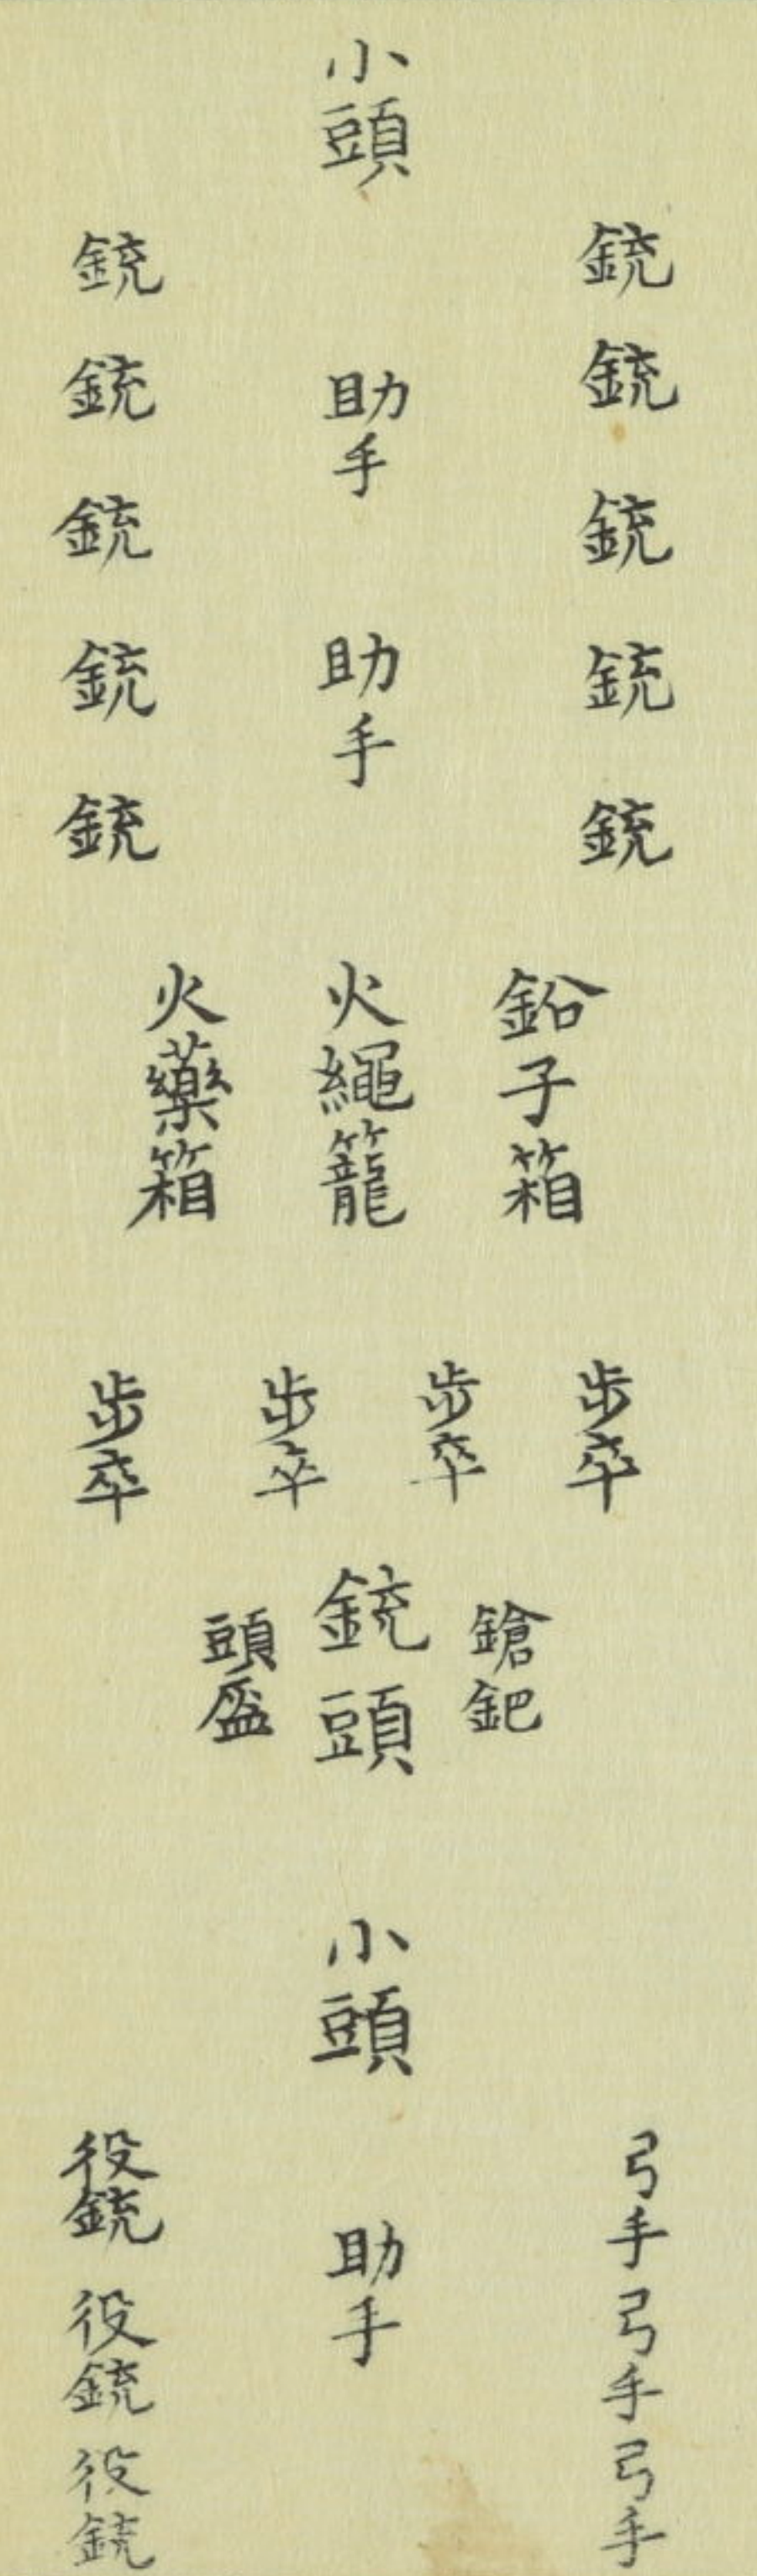 小頭
銃
銃
銃
銃
銃
助手
助手
銃
銃
銃
銃
銃
鉛子箱
火繩籠
火藥箱
步卒
步卒
步卒
步卒
鎗鈀
銃頭
頭盔
小頭
弓手
弓手
弓手
助手
役銃
役銃
役銃